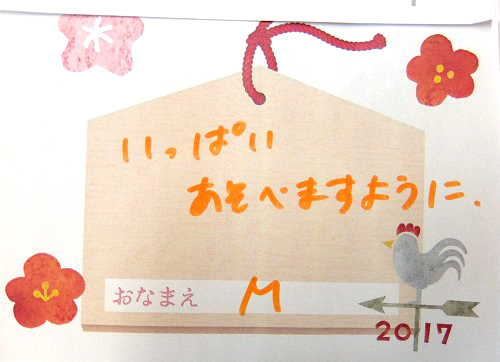 いっぱい
あそべますように.
おなまえ M
2017